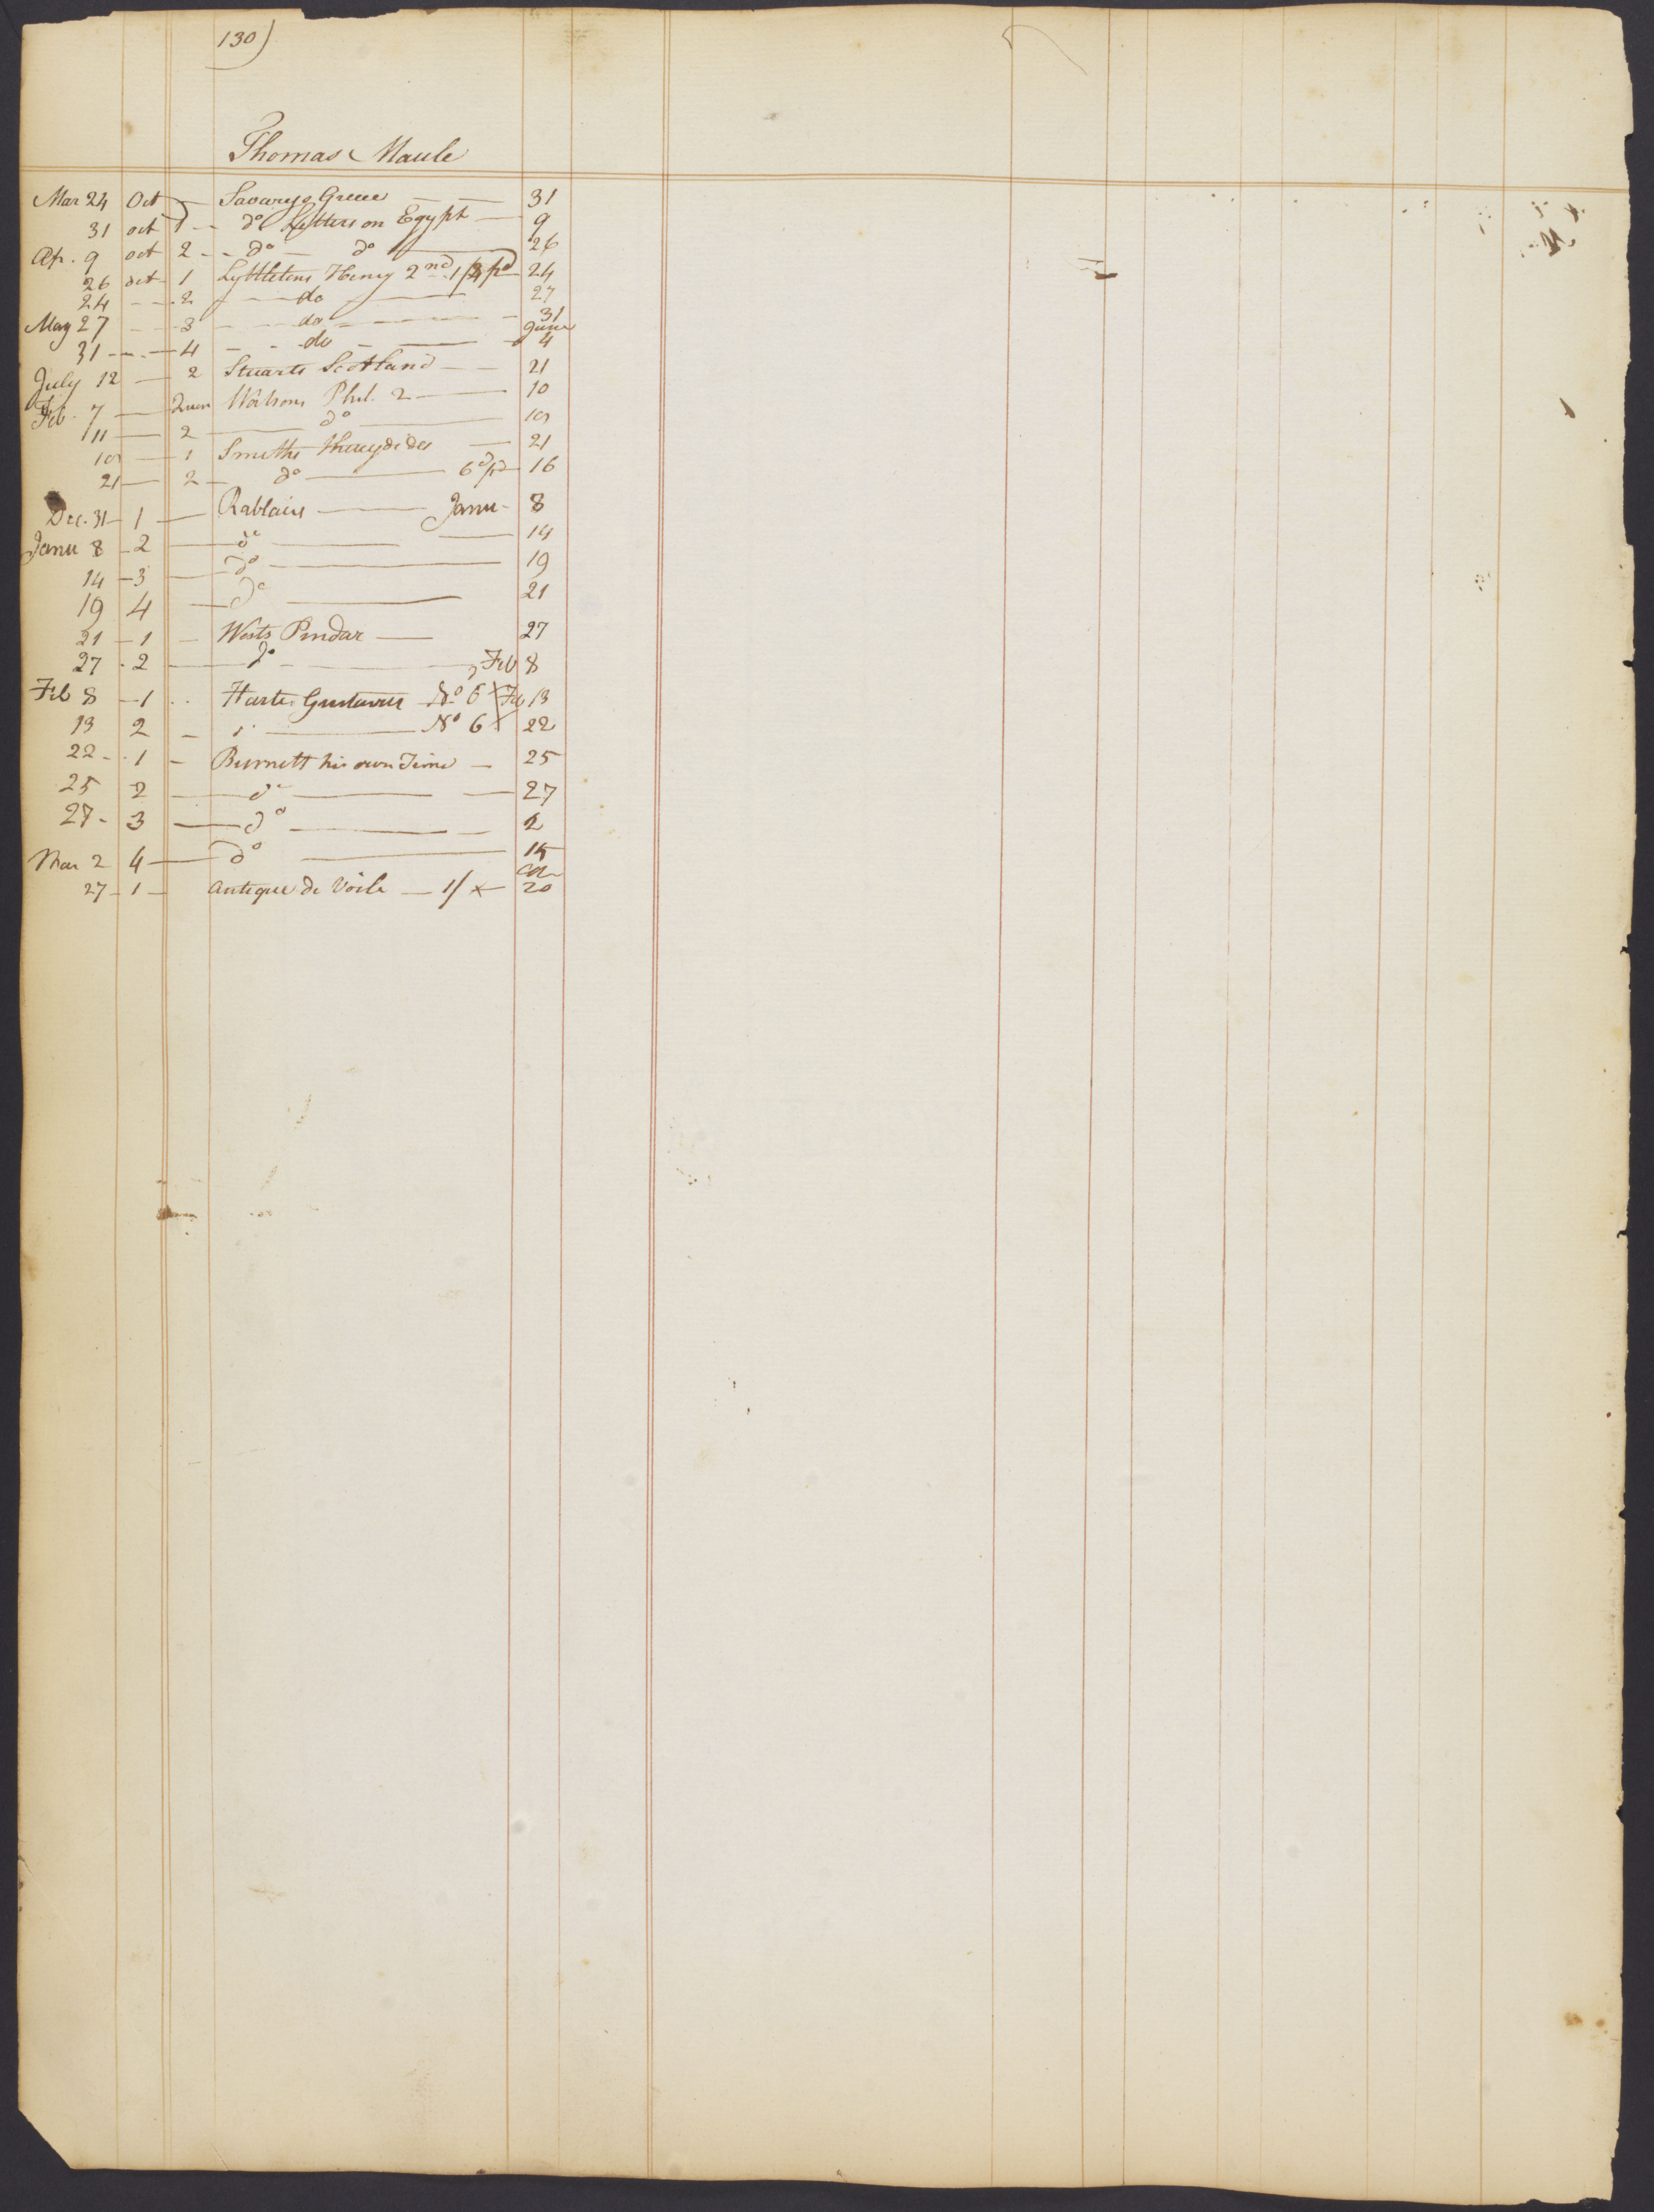 130)
Thomas Maule
Mar 24 Oct — Savarys Greece — — 31
31 oct 1 - - do Letters on Egypt — 9
Ap. 9 oct 2 - - do — do — 26
26 oct - 1 Lyttletons Henry 2nd 1/3 pd 24
24 - - - 2 - - - do — 27
May 27 - - - 3 - - - do - — - 31
31 - - . - 4 - - - do - — June 4
July 12 — 2 Stuarts Scotland - - 21
Feb. 7 — Watsons Phil. 2 — 10
11 — 2 — do — 10
10 — 1 Smiths Thucydides — 21
21 — 2 — do — 6d pd — 16
Dec. 31 - 1 — Rablais — Janu - 8
Janu 8 - 2 — do — — 14
14 - 3 — do — 19
19 4 — do — 21
21 - 1 — Wests Pindar — 27
27 - 2 — do - — Feb 8
Feb 8 - 1 . . Harte Gustavus No 6 x Feb 13
13 2 - — No 6 x 22
22 - . 1 - Burnett his own Time — 25
25 2 — do — — 27
27 - 3 — do — — 2
Mar 2 4 — do — 15
27 - 1 - Antique de Voile — 1/ x — 20